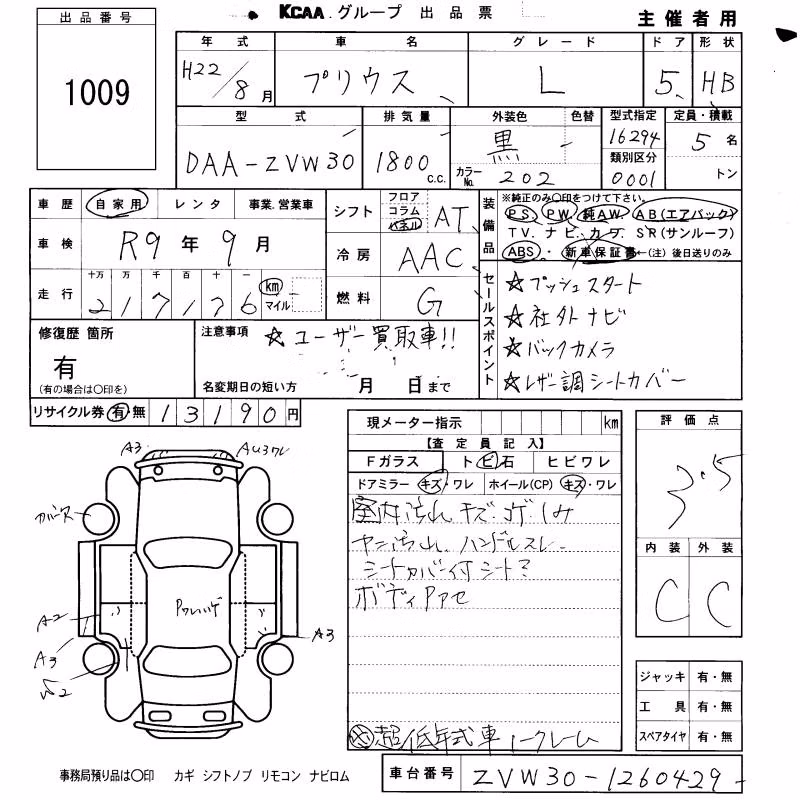 KCAA グループ 出品票
主催者用
出品番号
1009
年式 車名 グレード ドア 形状
H22/8月 プリウス L 5 HB
型式 排気量 外装色 色替 型式指定 定員・積載
DAA-ZVW30 1800 c.c. 黒 - 16294 5名
カラーNo. 202 類別区分 0001 トン
車歴 自家用 レンタ 事業.営業車
車検 R9年9月
走行 十万 万 千 百 十 一
217176 km マイル
シフト フロア コラム パネル AT
冷房 AAC
燃料 G
装備品 ※純正のみ〇印をつけて下さい。
PS PW 純AW AB(エアバック)
TV. ナビ カワ SR(サンルーフ)
ABS 新車保証書←(注)後日送りのみ
セールスポイント
☆プッシュスタート
☆社外ナビ
☆バックカメラ
☆レザー調シートカバー
修復歴 箇所
有
(有の場合は〇印を)
注意事項 ☆ユーザー買取車!!
名変期日の短い方 月 日まで
リサイクル券 有 無 13190円
現メーター指示 km
【査定員記入】
Fガラス トビ石 ヒビワレ
ドアミラー キズ・ワレ ホイール(CP) キズ・ワレ
室内汚れ キズ コゲ シミ
ヤニ汚れ ハンドルスレ
シートカバー付シート?
ボディ
※超低年式車 ノークレーム
評価点
3.5
内装 外装
C C
A3 AU3ワレ
A2
A3
A3
ジャッキ 有・無
工具 有・無
スペアタイヤ 有・無
事務局預り品は〇印 カギ シフトノブ リモコン ナビロム
車台番号 ZVW30-1260429-